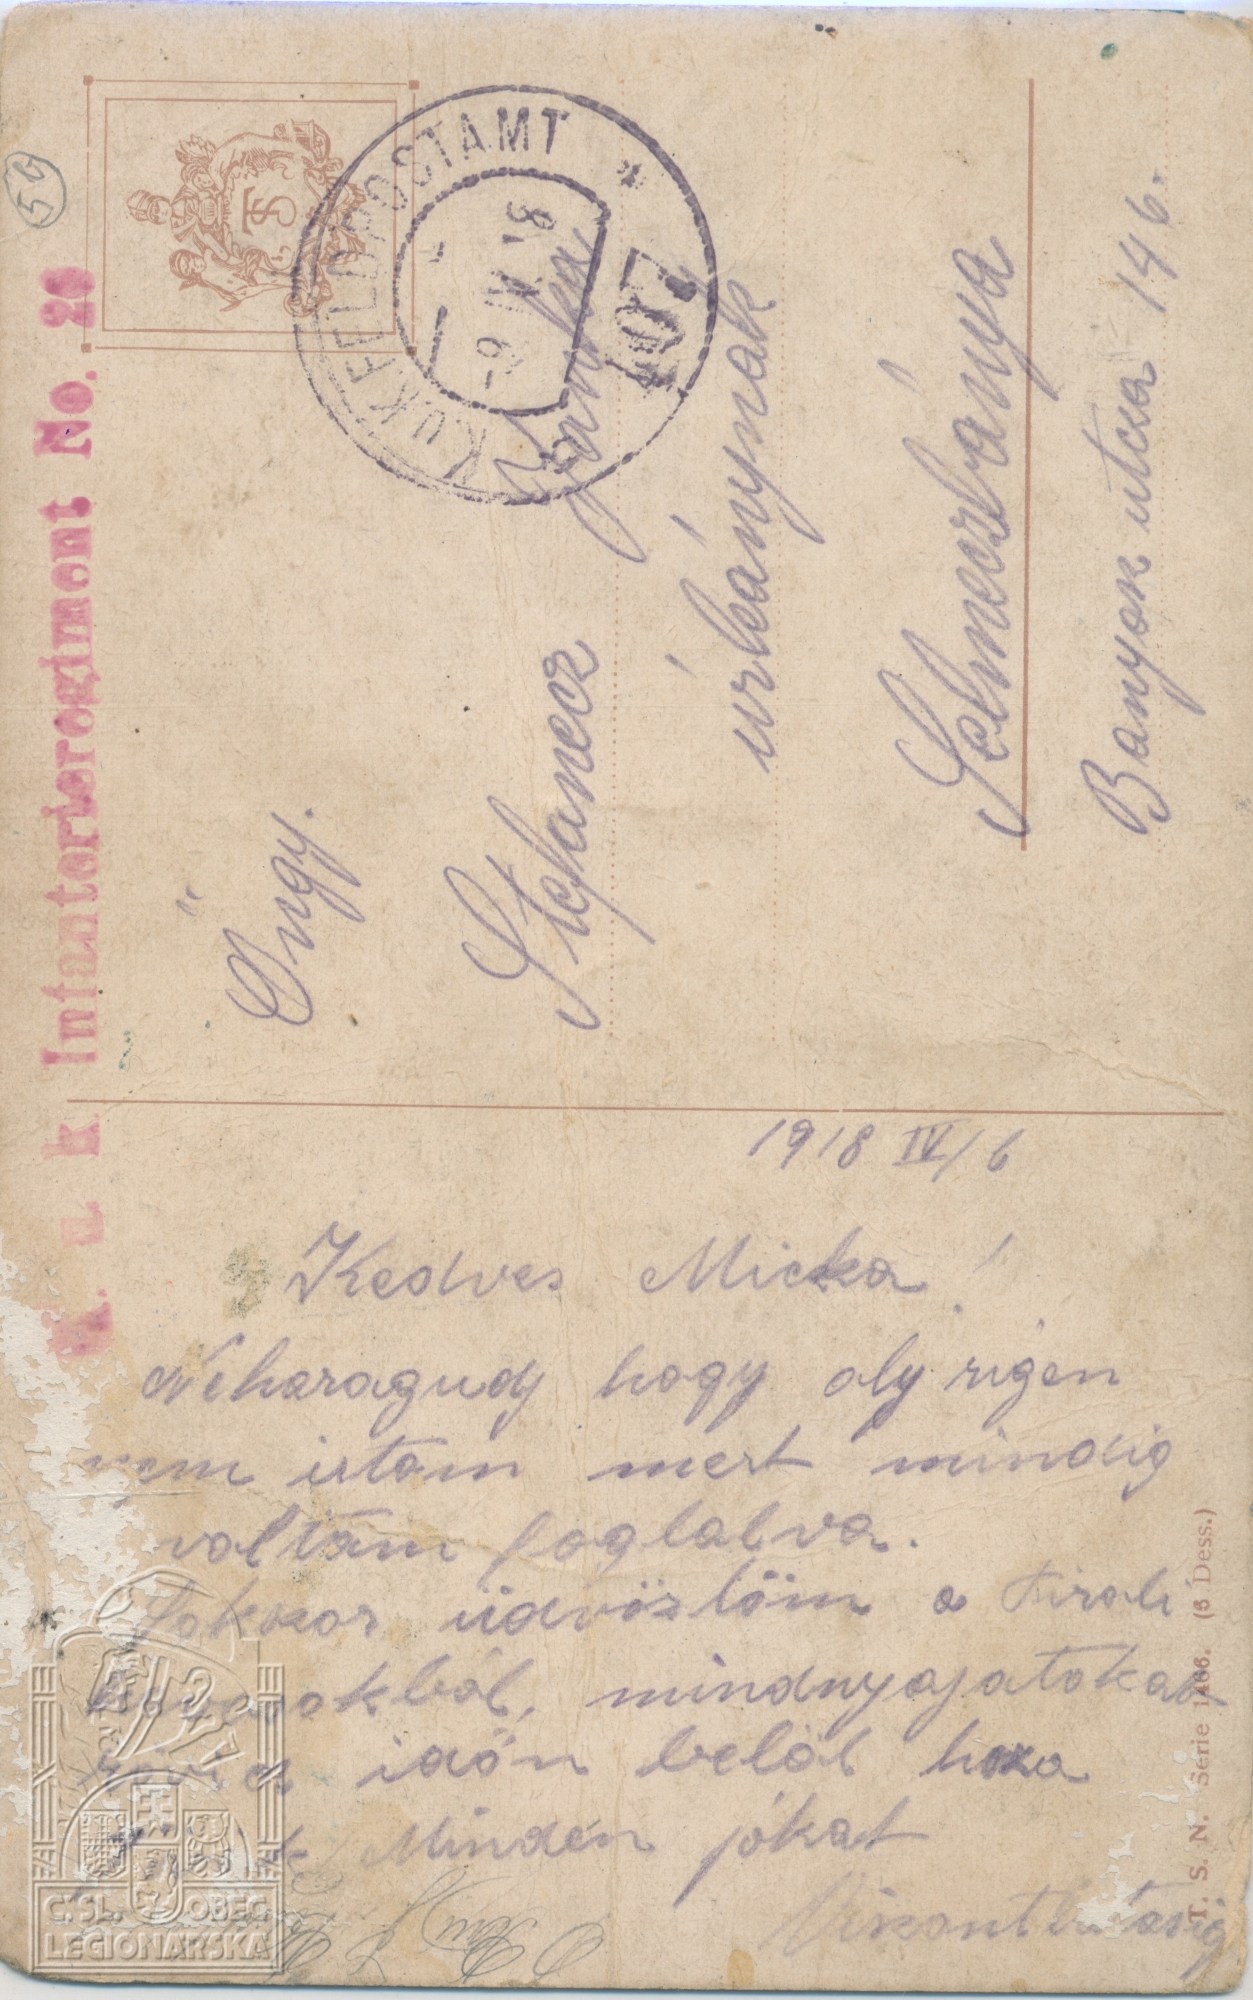 K. u. k. Infanterieregiment No. 26
59
K.u.K. FELDPOSTAMT
9. IV. 18.
407
Őngy.
Stefanecz Janka
úrleánynak
Selmeczbánya
Banyok utcza 146.
1918 IV/6
Kedves Micka!
Neharagudj hogy oly rigen
nem irtam mert mindig
voltám foglalva.
Sokkor üdvözlöm a Tiroli
havasokból, mindnyajatokat
idön belöl haza
Minden jókat
Viszontlatasig
T. S. N. Serie 1466. (5 Dess.)
Č.SL. OBEC
LEGIONÁŘSKÁ